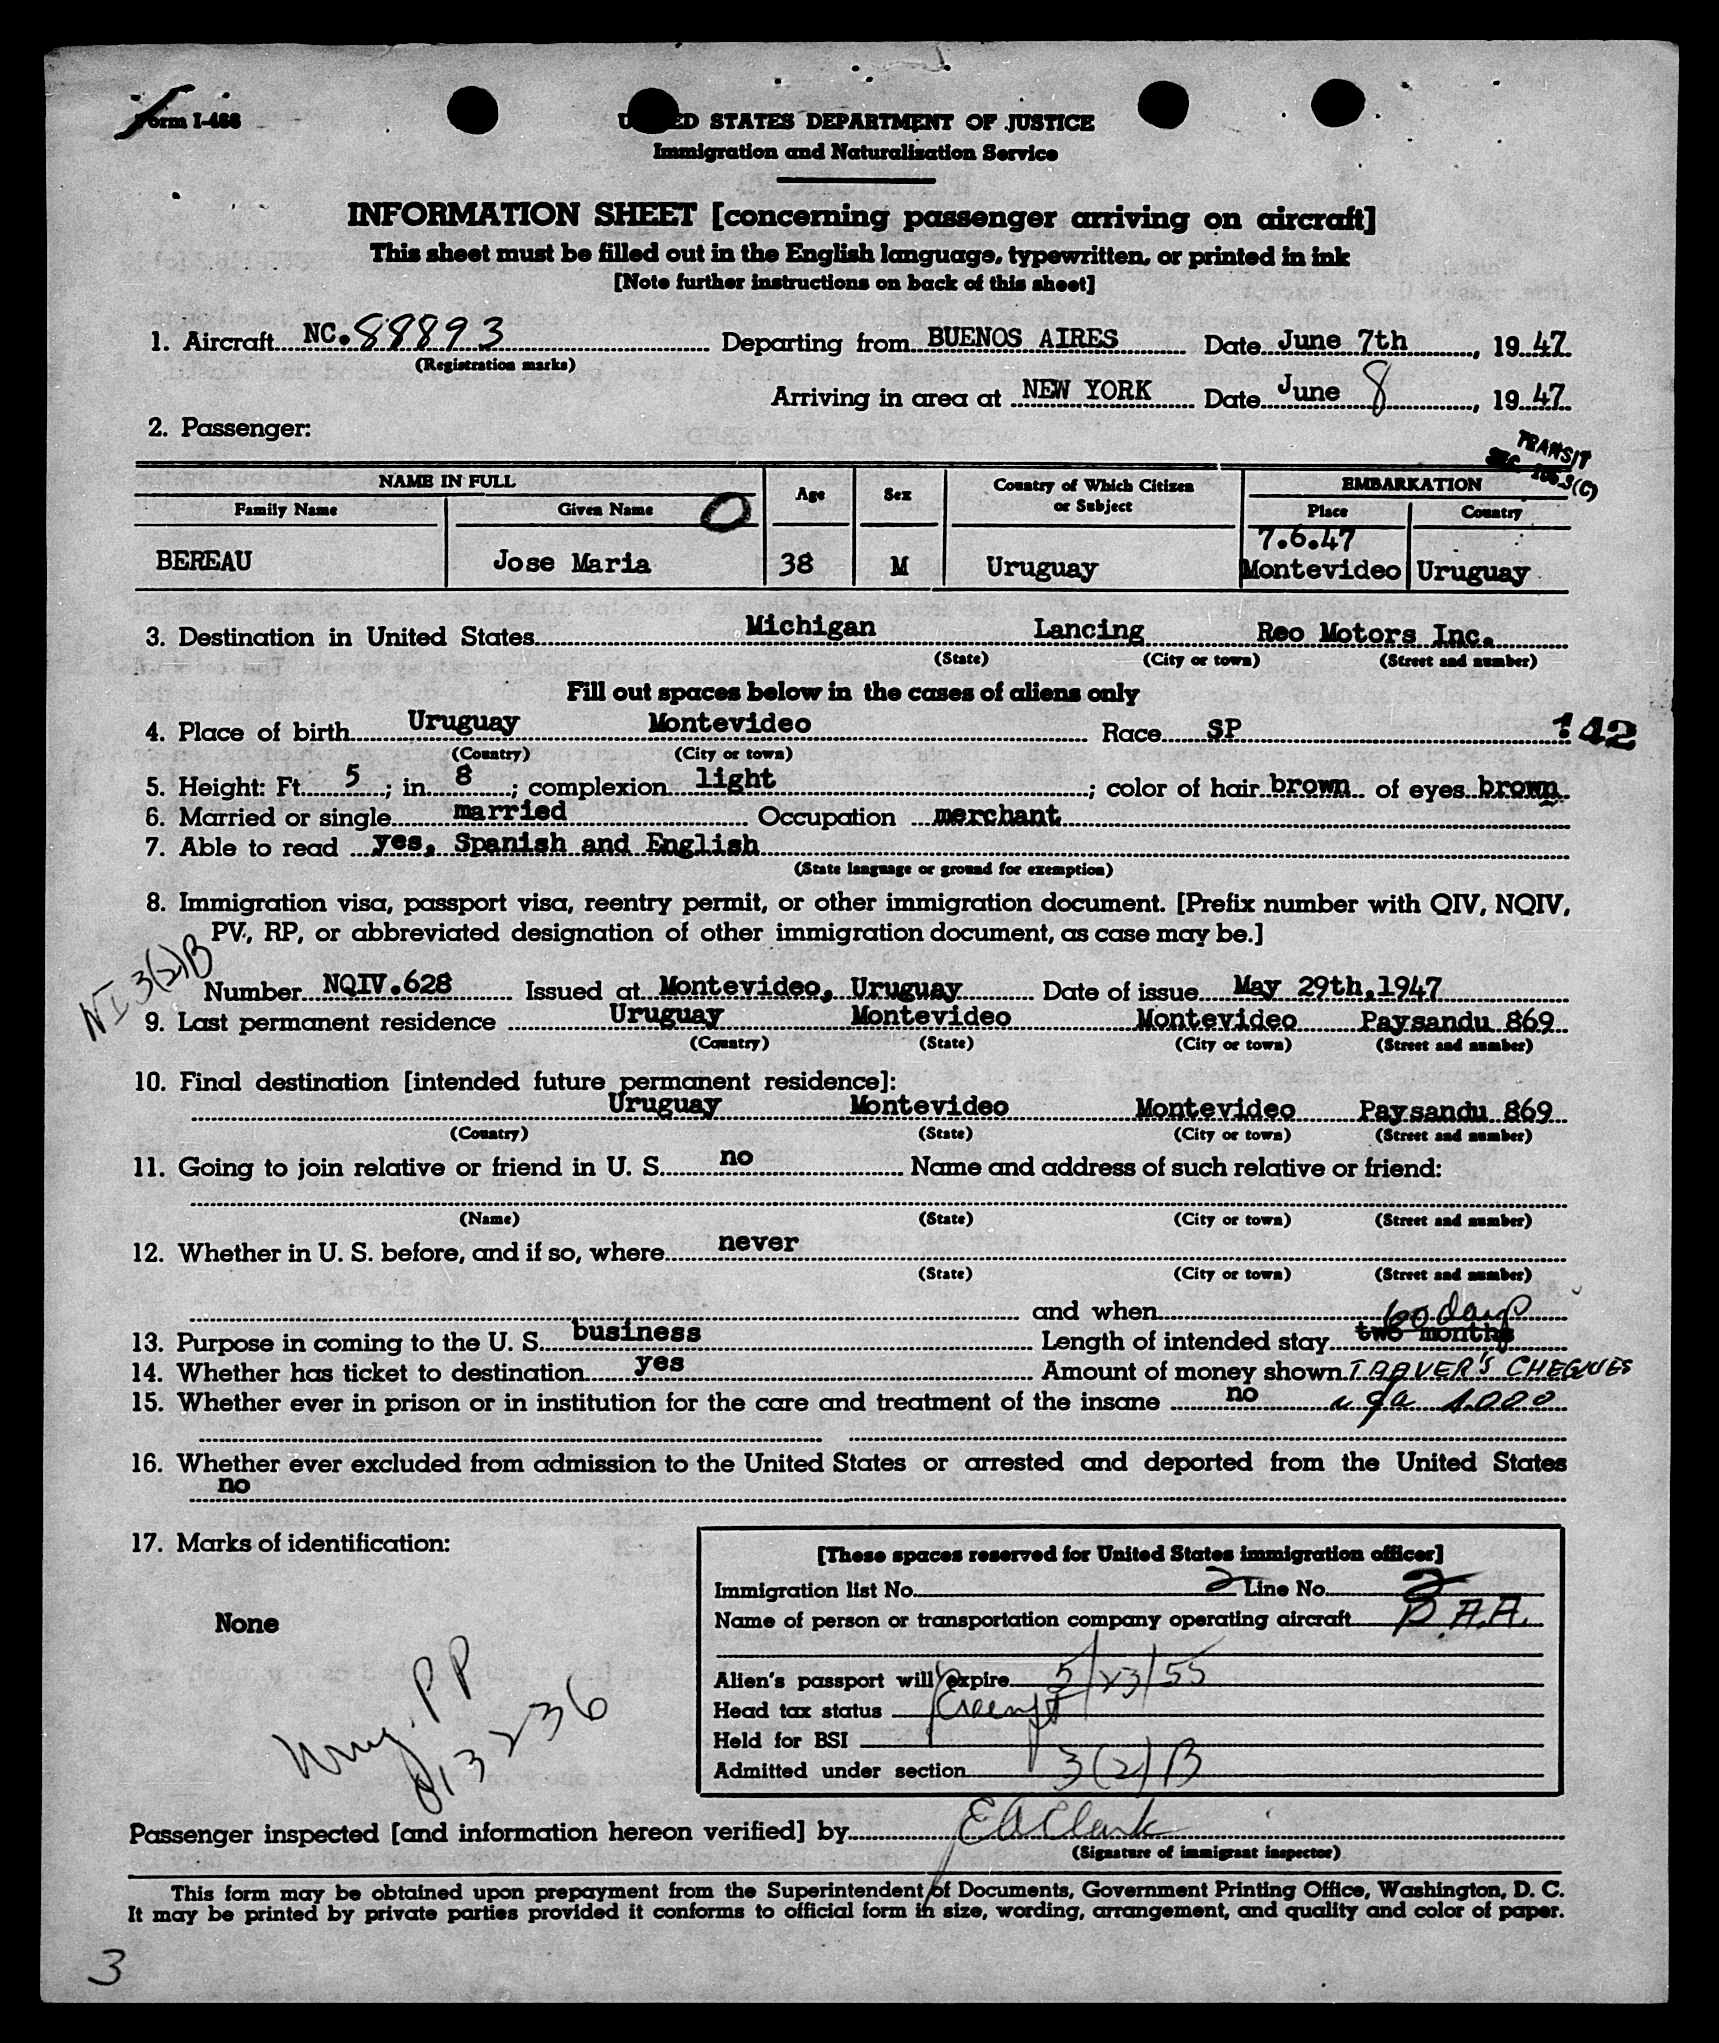 Form I-466
UNITED STATES DEPARTMENT OF JUSTICE
Immigration and Naturalization Service
INFORMATION SHEET [concerning passenger arriving on aircraft]
This sheet must be filled out in the English language, typewritten, or printed in ink
[Note further instructions on back of this sheet]
1. Aircraft NC.88893 Departing from BUENOS AIRES Date June 7th, 1947
(Registration marks)
Arriving in area at NEW YORK Date June 8, 1947
2. Passenger:
TRANSIT
SEC (C)
NAME IN FULL Age Sex Country of Which Citizen or Subject EMBARKATION
Family Name Given Name O Place Country
7.6.47
BEREAU Jose Maria 38 M Uruguay Montevideo Uruguay
3. Destination in United States Michigan Lancing Reo Motors Inc.
(State) (City or town) (Street and number)
Fill out spaces below in the cases of aliens only
4. Place of birth Uruguay Montevideo Race SP 142
(Country) (City or town)
5. Height: Ft. 5; in. 8; complexion light; color of hair brown of eyes brown
6. Married or single married Occupation merchant
7. Able to read yes, Spanish and English
(State language or ground for exemption)
8. Immigration visa, passport visa, reentry permit, or other immigration document. [Prefix number with QIV, NQIV,
PV, RP, or abbreviated designation of other immigration document, as case may be.]
NI 3(2)B
Number NQIV.628 Issued at Montevideo, Uruguay Date of issue May 29th,1947
9. Last permanent residence Uruguay Montevideo Montevideo Paysandu 869
(Country) (State) (City or town) (Street and number)
10. Final destination [intended future permanent residence]:
Uruguay Montevideo Montevideo Paysandu 869
(Country) (State) (City or town) (Street and number)
11. Going to join relative or friend in U. S. no Name and address of such relative or friend:
(Name) (State) (City or town) (Street and number)
12. Whether in U. S. before, and if so, where never
(State) (City or town) (Street and number)
and when
60 days
13. Purpose in coming to the U. S. business Length of intended stay two months
14. Whether has ticket to destination yes Amount of money shown TRAVER'S CHEQUES
15. Whether ever in prison or in institution for the care and treatment of the insane no 1.000
16. Whether ever excluded from admission to the United States or arrested and deported from the United States
no
17. Marks of identification:
None
Urug. PP
[These spaces reserved for United States immigration officer]
Immigration list No. 2 Line No. 2
Name of person or transportation company operating aircraft P.A.A.
Alien's passport will expire 5/23/55
Head tax status Exempt
Held for BSI
Admitted under section 3(2)B
Passenger inspected [and information hereon verified] by E A Clark
(Signature of immigrant inspector)
This form may be obtained upon prepayment from the Superintendent of Documents, Government Printing Office, Washington, D. C.
It may be printed by private parties provided it conforms to official form in size, wording, arrangement, and quality and color of paper.
3